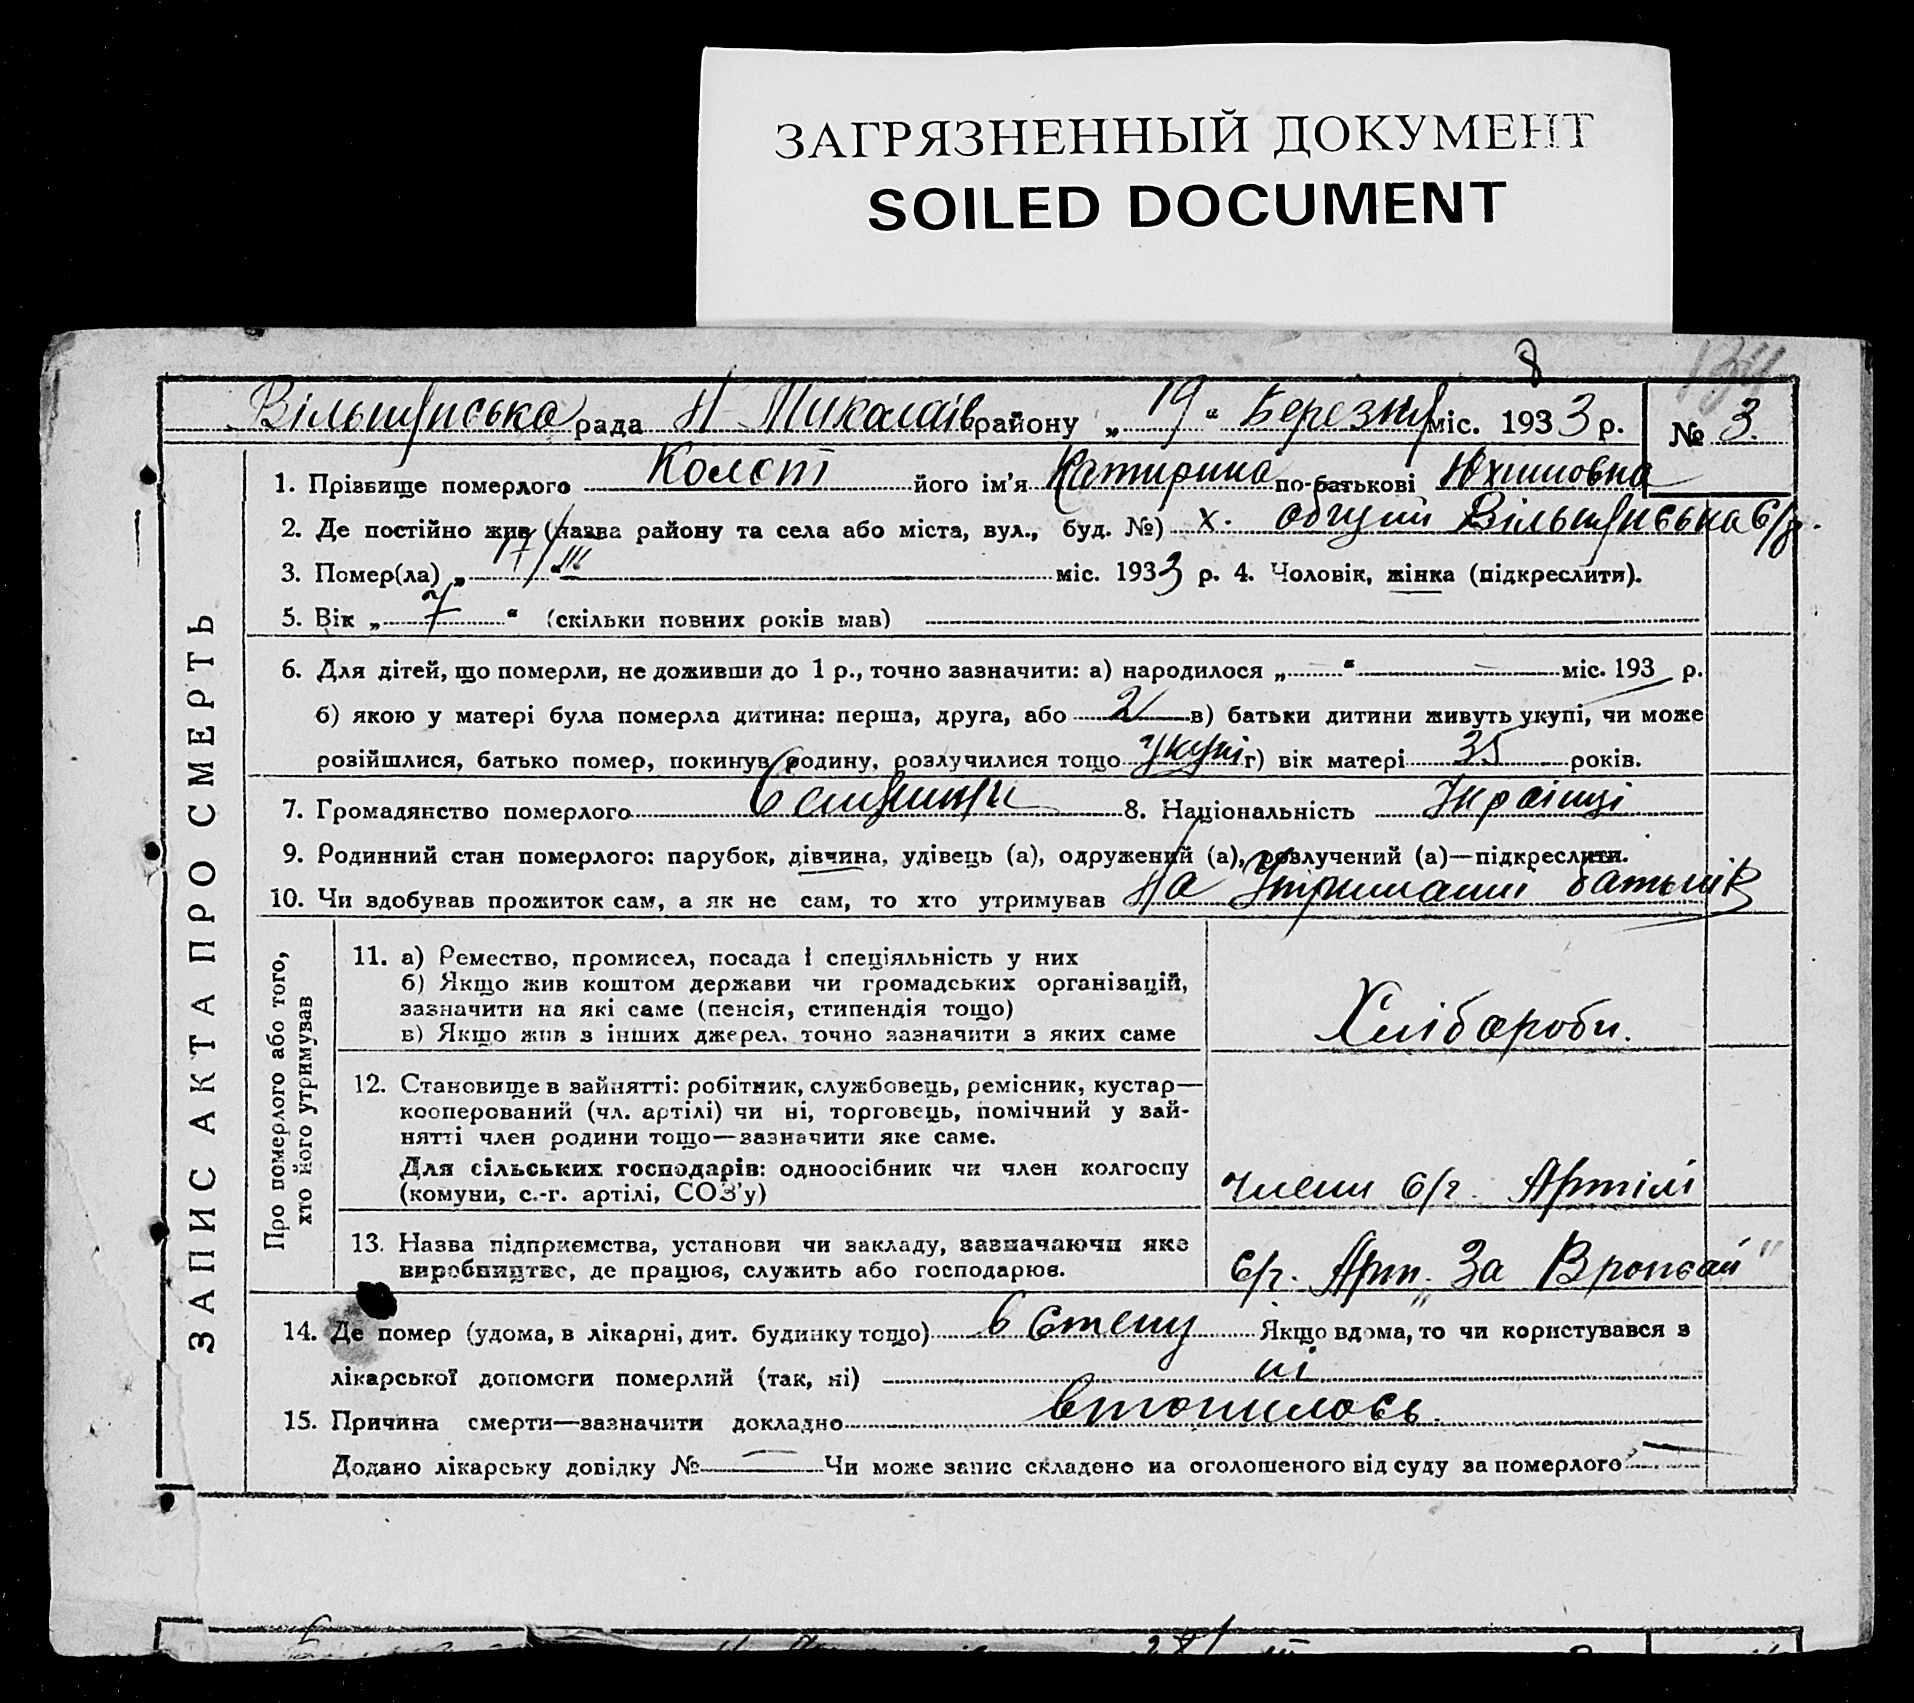 ЗАГРЯЗНЕННЫЙ ДОКУМЕНТ
SOILED DOCUMENT
8
Вільшунська рада Н Миколаїв району „ 19 “ Березня міс. 1933 р. № 3.
ЗАПИС АКТА ПРО СМЕРТЬ
1. Прізвище померлого його ім'я Катирина по-батькові Юхимовна
2. Де постійно жив (назва району та села або міста, вул., буд. №) х. Вільшунська с/р.
3. Помер(ла) „ 17/III “ міс. 1933 р. 4. Чоловік, жінка (підкреслити).
5. Вік „ 7 “ (скільки повних років мав)
6. Для дітей, що померли, не доживши до 1 р., точно зазначити: а) народилося „ “ міс. 193 р.
б) якою у матері була померла дитина: перша, друга, або 2 в) батьки дитини живуть укупі, чи може
розійшлися, батько помер, покинув родину, розлучилися тощо укупі г) вік матері 35 років.
7. Громадянство померлого 8. Національність Українці
9. Родинний стан померлого: парубок, дівчина, удівець (а), одружений (а), розлучений (а)—підкреслити.
10. Чи здобував прожиток сам, а як не сам, то хто утримував На Утриманні батьків
Про померлого або того,
хто його утримував
11. а) Ремество, промисел, посада і спеціяльність у них
б) Якщо жив коштом держави чи громадських організацій,
зазначити на які саме (пенсія, стипендія тощо)
в) Якщо жив з інших джерел, точно зазначити з яких саме
Хлібороби.
12. Становище в зайнятті: робітник, службовець, ремісник, кустар—
кооперований (чл. артілі) чи ні, торговець, помічний у зай-
нятті член родини тощо—зазначити яке саме.
Для сільських господарів: одноосібник чи член колгоспу
(комуни, с.-г. артілі, СОЗ'у)
члени с/г. Артілі
13. Назва підприємства, установи чи закладу, зазначаючи яке
виробництво, де працює, служить або господарює.
с/г. Арт. „За Врожай”
14. Де помер (удома, в лікарні, дит. будинку тощо) в степу Якщо вдома, то чи користувався з
лікарської допомоги померлий (так, ні) ні
15. Причина смерти—зазначити докладно втопилось.
Додано лікарську довідку № Чи може запис складено на оголошеного від суду за померлого